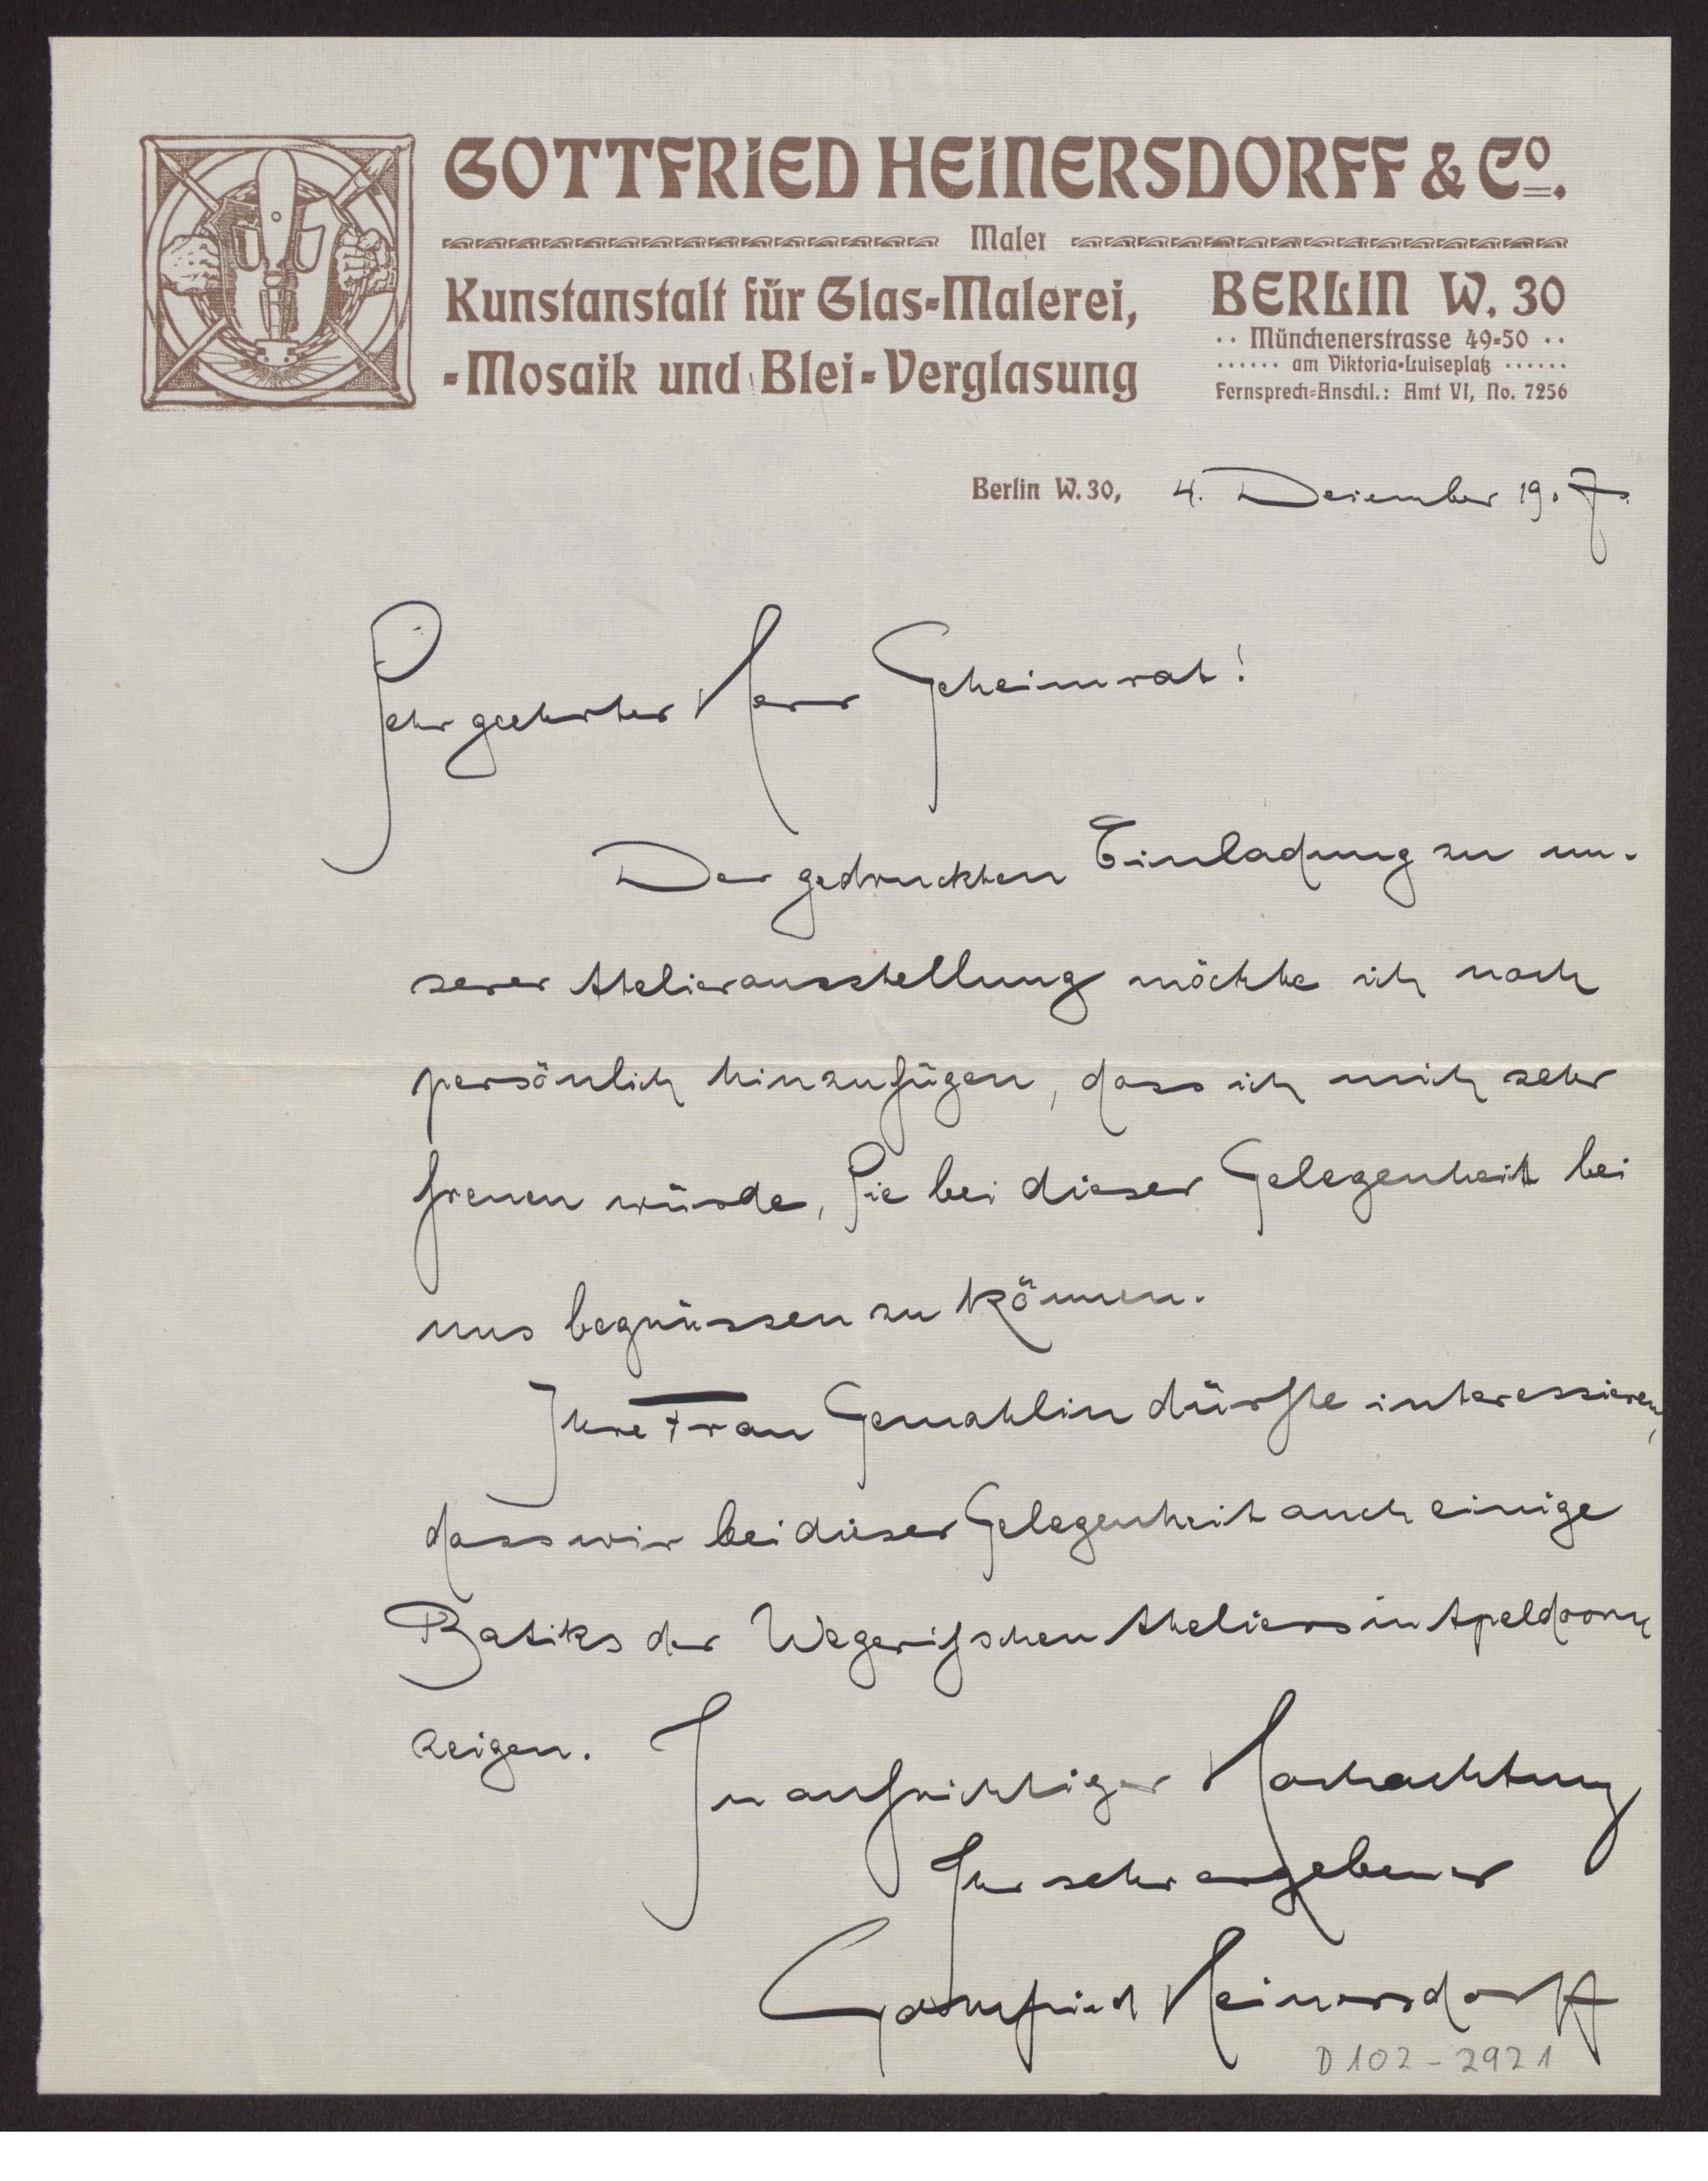 GOTTFRIED HEINERSDORFF & Co.
Maler
Kunstanstalt für Glas-Malerei,
-Mosaik und Blei-Verglasung
BERLIN W. 30
·· Münchenerstrasse 49-50 ··
······ am Viktoria-Luiseplatz ······
Fernsprech-Anschl.: Amt VI, No. 7256
Berlin W. 30, 4. Dezember 19.7.
Sehr geehrter Herr Geheimrat!
Der gedruckten Einladung zu un-
serer Atelierausstellung möchte ich noch
persönlich hinzufügen, dass ich mich sehr
freuen würde, Sie bei dieser Gelegenheit bei
uns begrüssen zu können.
Ihre Frau Gemahlin dürfte interessieren,
dass wir bei dieser Gelegenheit auch einige
Batiks der Wegerifschen Ateliers in Apeldoorn
zeigen. In aufrichtiger Hochachtung
Ihr sehr ergebener
Gottfried Heinersdorff
D 102 - 2921